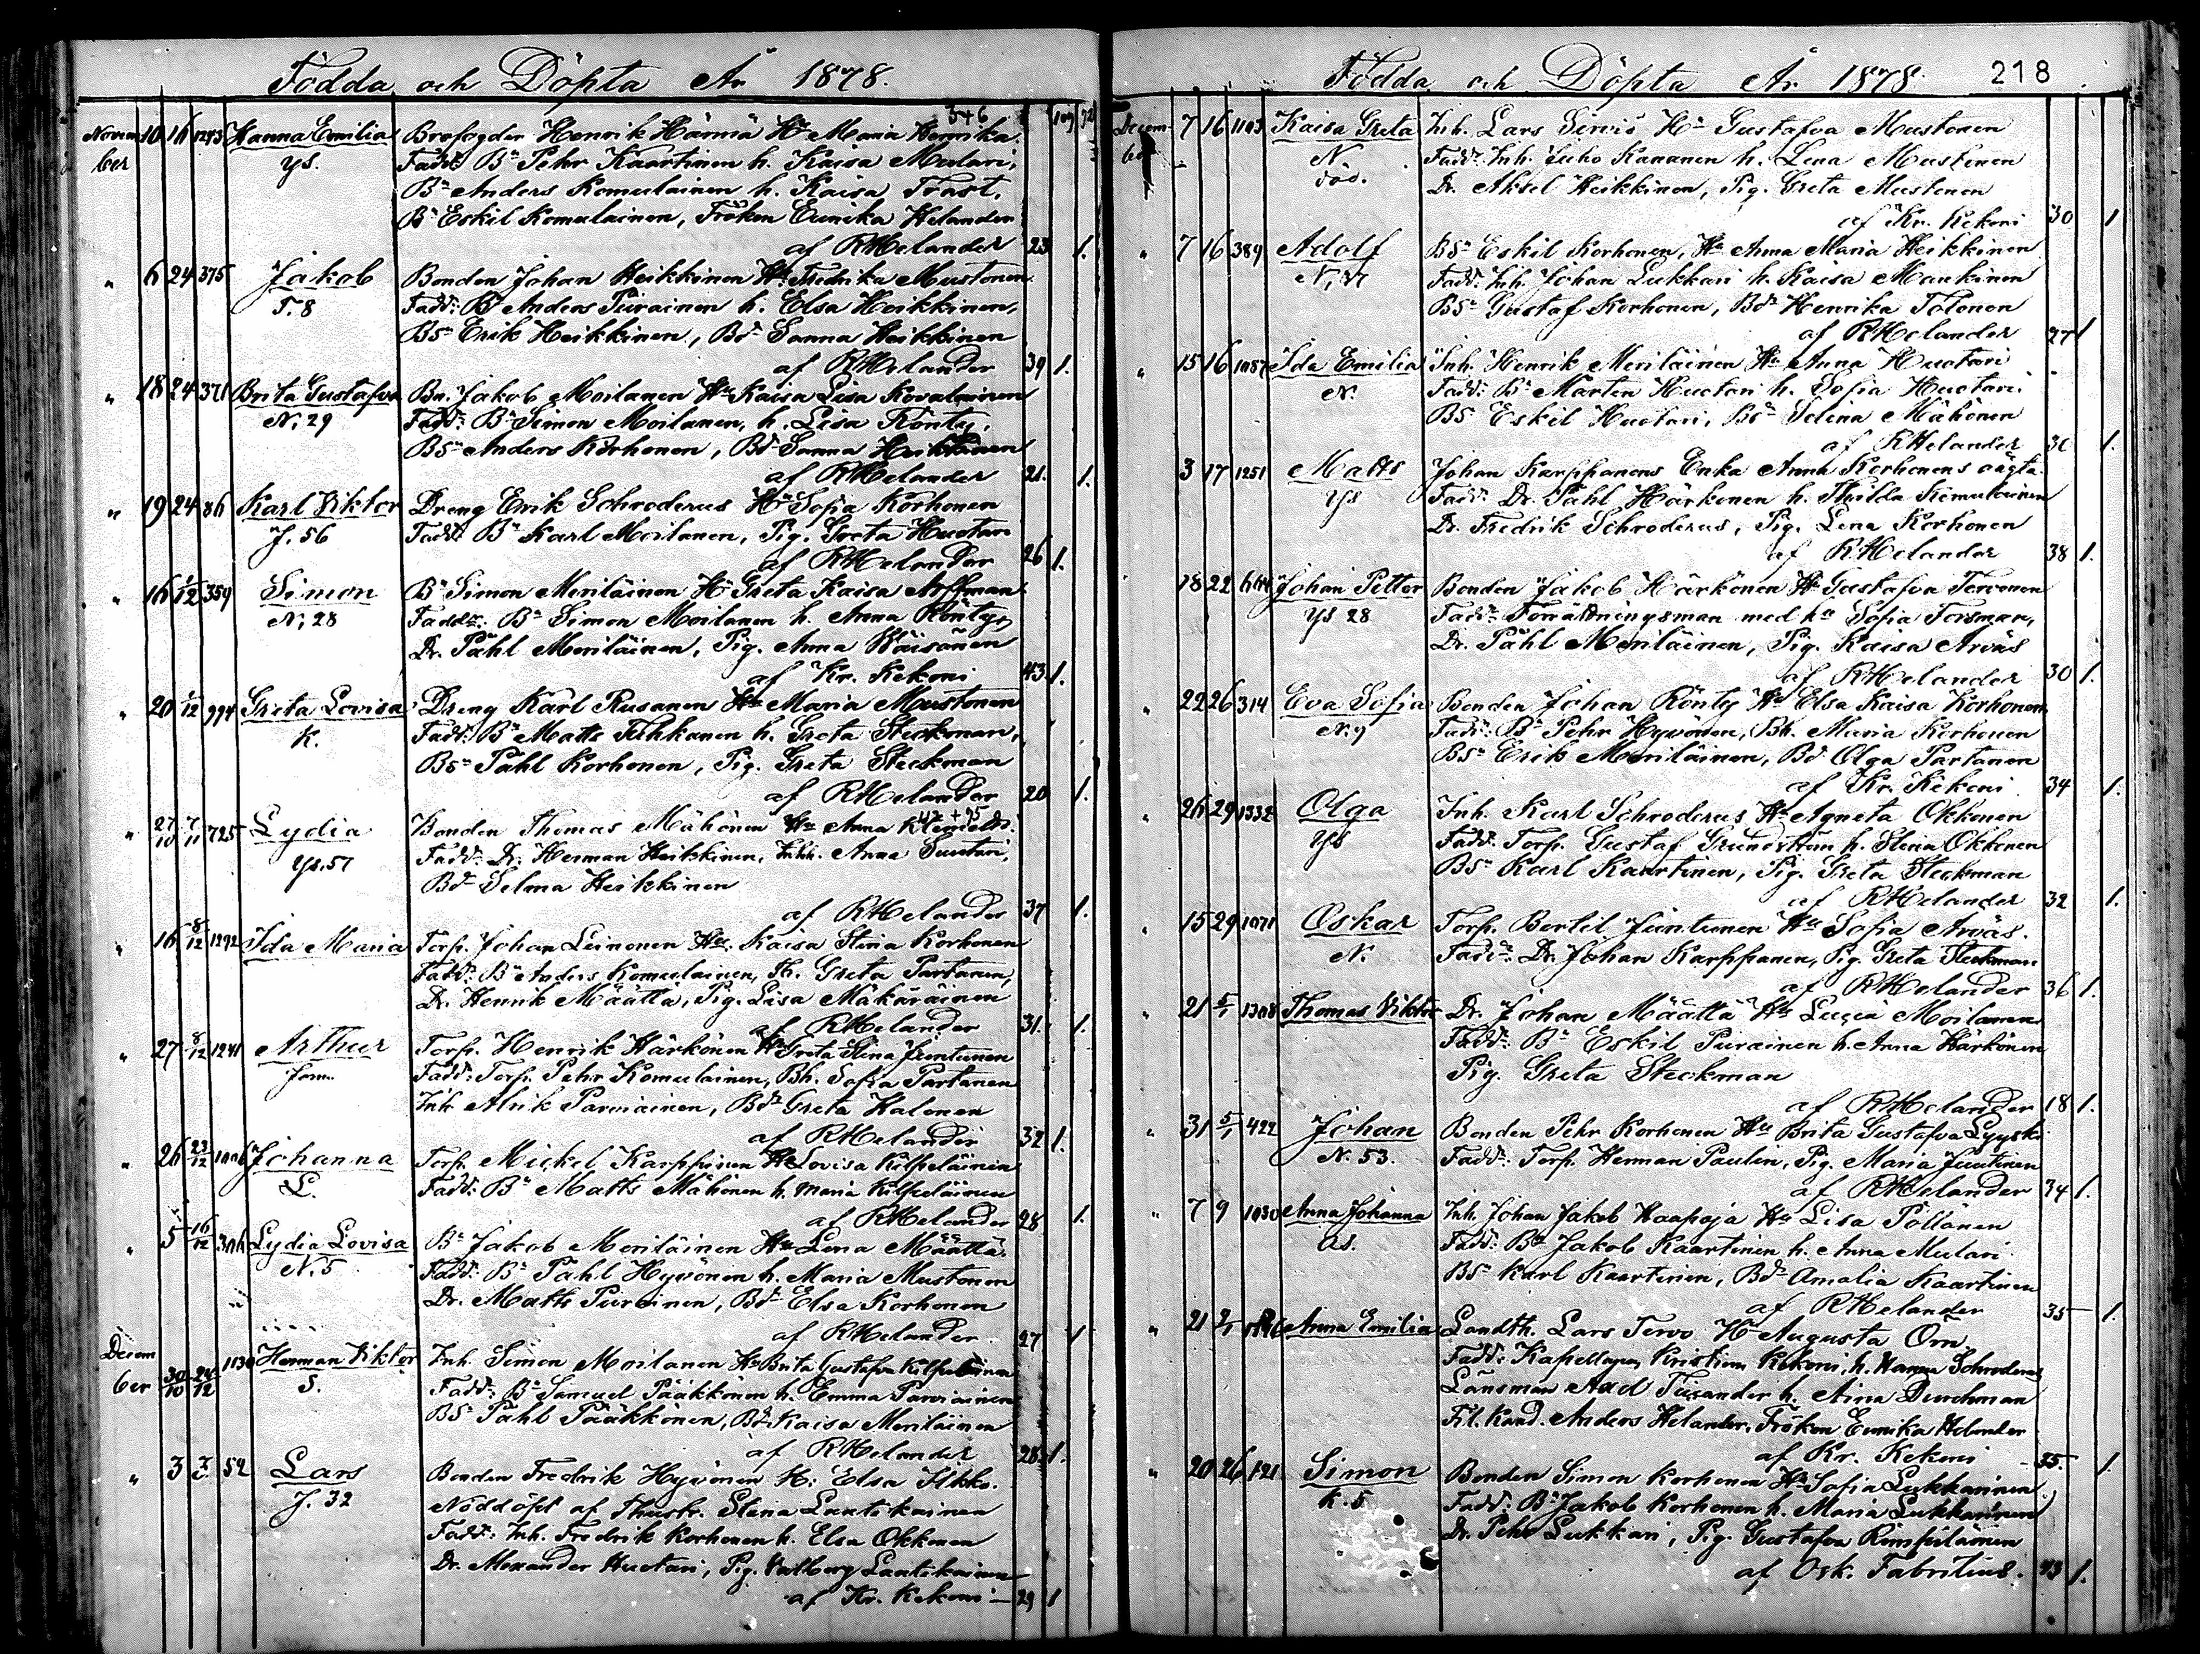 Födda och Döpta År 1878.
346
109 92
Novem
ber
10 16 1243 Hanna Emilia
ys.
Brofogden Henrik Härmä Hu Maria Henrika
Fadd: Bn Pehr Kaartinen h. Kaisa Mulari,
Bn Anders Komulainen h. Kaisa Trast,
Bn Eskil Komulainen, Fröken Eunika Helander
af RHelander 23 1.
" 6 24 375 Jakob
T. 8
Bonden Johan Heikkinen Hu Fredrika Mustonen
Fadd: Bn Anders Piirainen h. Elsa Heikkinen,
Bsn Erik Heikkinen, Bdr Sanna Heikkinen
af RHelander 39 1.
" 18 24 371 Brita Gustafva
N. 29
Bn. Jakob Moilanen Hu Kaisa Lisa Kovalainen
Fadd: Bn Simon Moilanen, h. Lisa Rönty,
Bsn Anders Korhonen, Bdr Sanna Heikkinen
af RHelander 21. 1.
" 19 24 86 Karl Viktor
J. 56
Dreng Erik Schroderus Hu Sofia Korhonen
Fadd: Bn Karl Moilanen, Pig. Greta Huotari
af RHelander 26 1.
" 16 1/12 359 Simon
N. 28
Bn Simon Meriläinen Hu Greta Kaisa Arffman
Faddr: Bn Simon Moilanen h. Anna Röntys
Dr. Påhl Meriläinen, Pig. Anna Wäisänen
af Kr. Kekoni 43 1.
" 20 1/12 994 Greta Lovisa
K.
Dreng Karl Rusanen Hu Maria Mustonen
Fadd: Bn Matts Tuhkanen h. Greta Steckman,
Bsn Påhl Korhonen, Pig. Greta Steckman
af RHelander 20 1.
" 27/10 7/11 725 Lydia
ys. 57
Bonden Thomas Mähönen Hu Anna
Fadd: Dr. Herman Heikkinen, Inh. Anna Suutari,
Bdr Selma Heikkinen
af RHelander 37 1.
" 16 8/12 1292 Ida Maria
Torp. Johan Leinonen Hu. Kaisa Stina Korhonen
Fadd: Bn Anders Komulainen, Bh. Greta Partanen,
Dr. Henrik Määttä, Pig. Lisa Mäkäräinen
af RHelander 31. 1.
" 27 8/12 1241 Arthur
Torp. Henrik Härkönen Hu Greta Stina Juntunen
Fadd: Torp. Pehr Komulainen, Bh. Sofia Partanen
Inh Alrik Parviainen, Bdr Greta Halonen
af RHelander 32 1.
" 26 23/12 1006 Johanna
L.
Torp. Mickel Karppinen Hu Lovisa Kilpeläinen
Fadd: Bn Matts Mähönen h. Maria Kilpeläinen
af RHelander 28 1.
" 5 16/12 306 Lydia Lovisa
N. 5
Bn Jakob Meriläinen Hu Lena Määttä.
Fadd: Bn Påhl Hyvönen h. Maria Mustonen
Dr. Matts Piirainen, Bdr Elsa Korhonen
af RHelander 27 1
Decem
ber
30/10 24/12 1130 Herman Viktor
S.
Inh. Simon Moilanen Hu Brita Gustafva Kilpeläinen
Fadd: Bn Samuel Pääkkönen h. Emma Parviainen
Bsn Påhl Pääkkönen, Bdr Kaisa Meriläinen
af RHelander 28. 1.
" 3 52 Lars
J. 32
Bonden Fredrik Hyvönen H: Elsa Ilkko.
Nöddöpt af Hustr. Stina Lantikainen
Fadd: Inh. Fredrik Korhonen h. Elsa Okkonen
Dr. Alexander Huotari, Pig. Valborg Lantikainen
af Kr. Kekoni — 29 1
Födda och Döpta År 1878.
218
Decem
ber
7 16 1103 Kaisa Greta
N
död.
Inh. Lars Sirviö Hu Gustafva Mustonen
Fadd: Inh. Juho Kananen h. Lena Mustonen
Dr. Aksel Heikkinen, Pig. Greta Mustonen
af Kr. Kekoni 30 1
" 7 16 389 Adolf
Bsn Eskil Korhonen, Hu Anna Maria Heikkinen
Fadd: Inh. Johan Lukkari h. Kaisa Mankinen
Bsn Gustaf Korhonen, Bdr Henrika Tolonen
af RHelander 27 1
" 15 16 1087 Ida Emilia
N.
Inh. Henrik Meriläinen Hu Anna Huotari
Fadd: Bn Mårten Huotari h. Sofia Huotari.
Bsn Eskil Huotari, Bdr Selma Mähönen
af RHelander 30 1.
3 17 1251 Matts
ys
Johan Karppanens Enka Anna Korhonens oägta.
Fadd: Dr. Påhl Härkönen h. Thilda Komulainen
Dr. Fredrik Schroderus, Pig. Lena Korhonen
af RHelander 38 1.
18 22 664 Johan Petter
ys 28
Bonden Jakob Härkönen Hu Gustafva Tervonen
Fadd: Förvaltningsman med hu Sofia Forsman,
Dr. Påhl Meriläinen, Pig. Kaisa Arväs
af RHelander 30 1.
" 22 26 314 Eva Sofia
N. 9
Bonden Johan Rönty Hu Elsa Kaisa Korhonen
Fadd: Bn Pehr Hyvönen, Bh. Maria Korhonen
Bsn Erik Meriläinen, Bd Olga Partanen
af Kr. Kekoni 34 1.
" 26 29 1332 Olga
ys
Inh. Karl Schroderus Hu Agneta Okkonen
Fadd: Torp. Gustaf Grundström h. Stina Okkonen
Bsn Karl Kaartinen, Pig. Greta Steckman
af RHelander 32 1.
" 15 29 1071 Oskar
N.
Torp. Bertil Juntunen Hu Sofia Arväs.
Fadd: Dr. Johan Karppanen, Pig. Greta Steckman
af RHelander 36 1.
" 21 5/1 1308 Thomas Viktor
Dr. Johan Määttä Hu Lucia Moilanen
Fadd: Bn Eskil Piirainen h. Anna Härkönen
Pig. Greta Steckman
af RHelander 18 1.
" 31 5/1 422 Johan
N. 53.
Bonden Pehr Korhonen Hu Brita Gustafva Lyyski
Fadd: Torp. Herman Paulin, Pig. Maria Juutinen
af RHelander 34 1.
" 7 9 1030 Anna Johanna
as.
Inh. Johan Jakob Haapoja Hu Lisa Pöllänen
Fadd: Bn Jakob Kaartinen h. Anna Mulari
Bsn Karl Kaartinen, Bdr Amalia Kaartinen
af RHelander 35 1.
" 21 2/1 Anna Emilia
Landth. Lars Tervo Hu Augusta Örn
Fadd: Kapellanen Kristian Kekoni, h. Hanna Schroderus
Länsman Axel Tuxander h. Aina Durchman
Fil. Kand. Anders Helander, Fröken Eunika Helander
af Kr. Kekoni — 35. 1.
" 20 26 121 Simon
K. 5
Bonden Simon Korhonen Hu Sofia Lukkarinen
Fadd: Bn Jakob Korhonen h. Maria Lukkarinen
Dr. Pehr Lukkari, Pig. Gustafva Rimpiläinen
af Osk. Fabritius. 43 1.